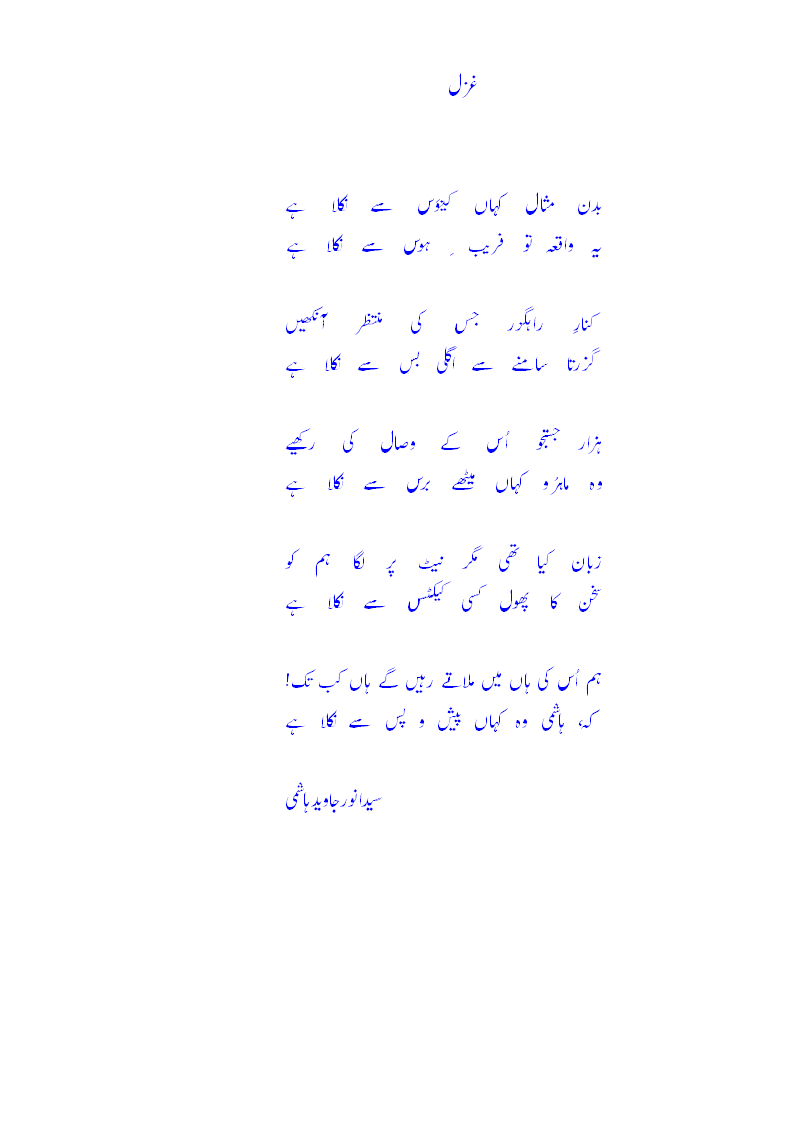 غزل
بدن مثال کہاں کینؤس سے نکلا ہے
یہ واقعہ تو فریب ِ ہوس سے نکلا ہے
کنارِ راہگذر جس کی منتظر آنکھیں
گزرتا سامنے سے اگلی بس سے نکلا ہے
ہزار جستجو اُس کے وصال کی رکھیے
وہ ماہرُو کہاں میٹھے برس سے نکلا ہے
زبان کیا تھی مگر نیٹ پر لگا ہم کو
سخن کا پھول کسی کیکٹس سے نکلا ہے
ہم اُس کی ہاں میں ملاتے رہیں گے ہاں کب تک!
کہ، ہاشمی وہ کہاں پیش و پس سے نکلا ہے
سیدانورجاویدہاشمی